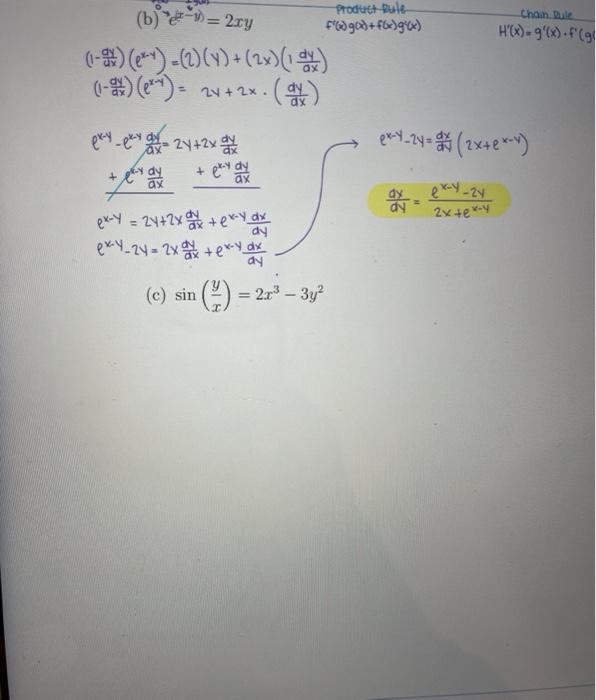 Product Rule
f'(x)g(x)+f(x)g'(x)
Chain Rule
H'(x)=g'(x)·f'(g(
(b) e^(x-y) = 2xy
(1-dy/dx)(e^x-y)=(2)(y)+(2x)(1 dy/dx)
(1-dy/dx)(e^x-y)= 2y+2x·(dy/dx)
e^x-y-e^x-y dy/dx=2y+2x dy/dx
+ e^x-y dy/dx + e^x-y dy/dx
e^x-y = 2y+2x dy/dx + e^x-y dx/dy
e^x-y-2y = 2x dy/dx + e^x-y dx/dy
e^x-y-2y= dx/dy (2x+e^x-y)
dx/dy = e^x-y-2y/2x+e^x-y
(c) sin (y/x) = 2x³ − 3y²